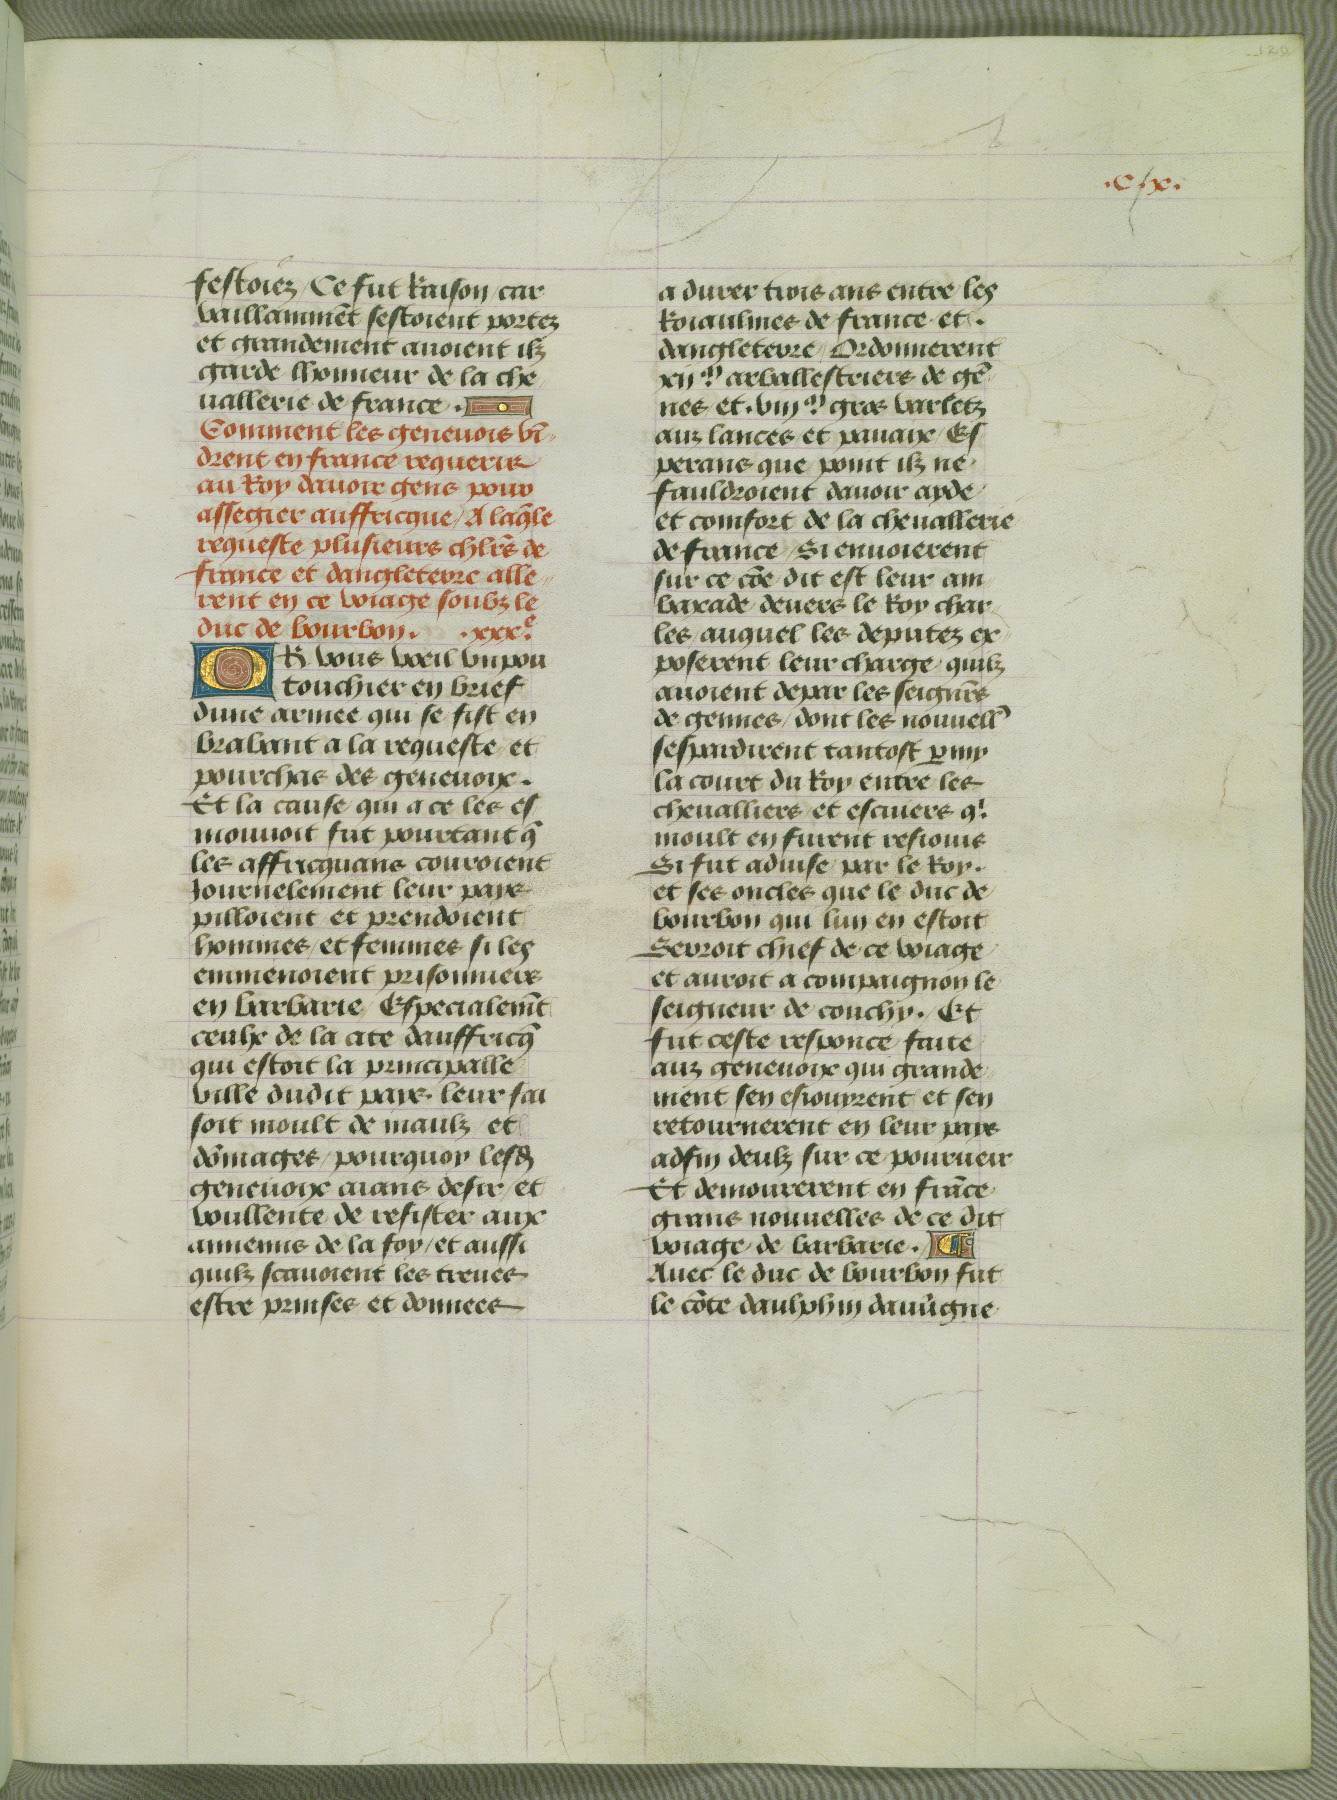 120
.C.x.
festoiez / Ce fut Raison / car
vaillamment sestoient portez
et grandement auoient ilz
garde lhonneur de la che
uallerie de france .
Comment les geneuois vī-
drent en france requerir
au Roy dauoir gens pour
assegier auffricque / A laq̄le
requeste plusieurs chl̄rs de
france et dangleterre alle-
rent en ce voiage soubz le
duc de bourbon. .xxxᵉ.
OR vous vœil vn pou
touchier en brief
dune armee qui se fist en
brabant a la requeste et
pourchas des geneuoix.
Et la cause qui a ce les es
mouuoit fut pourtant q̄
les affricquans couroient
Journelement leur pays
pilloient et prendoient
hommes / et femmes si les
emmenoient prisonniers
en barbarie / Especialem̄t
ceulx de la cite dauffricq̄
qui estoit la principalle
ville dudit pays. leur fai
soit moult de maulz et
dōmages / pourquoy lesd̄
geneuoix aians desir / et
voullente de resister aux
annemis de la foy / et aussi
quilz scauoient les treues
estre prinses et donnees
a durer trois ans entre les
Roiaulmes de france et.
dangleterre / Ordonnerent
xij.ᵐ arballestriers de gē-
nes et .viij.ᵐ gros varletz
auz lances et pauaix / Es
perans que point ilz ne
fauldroient dauoir ayde
et comfort de la cheuallerie
de france / Si enuoierent
sur ce cōe dit est leur am
baxade deuers le Roy char
les / auquel les deputez ex
poserent leur charge / quilz
auoient depar les seign̄rs
de gennes / dont les nouuell'
sespardirent tantost ꝑmy
la court du Roy entre les
cheualliers et escuiers qⁱ
moult en furent resiouis
Si fut aduise par le Roy.
et ses oncles que le duc de
bourbon qui lun en estoit
Seroit chief de ce voiage
et auroit a compaignon le
seigneur de couchy. / Et
fut ceste responce faite
auz geneuoix qui grande
ment sen esiouyrent et sen
retournerent en leur pays
adfin deulz sur ce pourueir
Et demourerent en frāce
grans nouuelles de ce dit
voiage de barbarie.
Auec le duc de bourbon fut
le cōte daulphin dauūigne